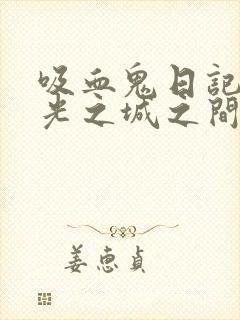 吸血鬼日記
光之城之間
姜惠貞